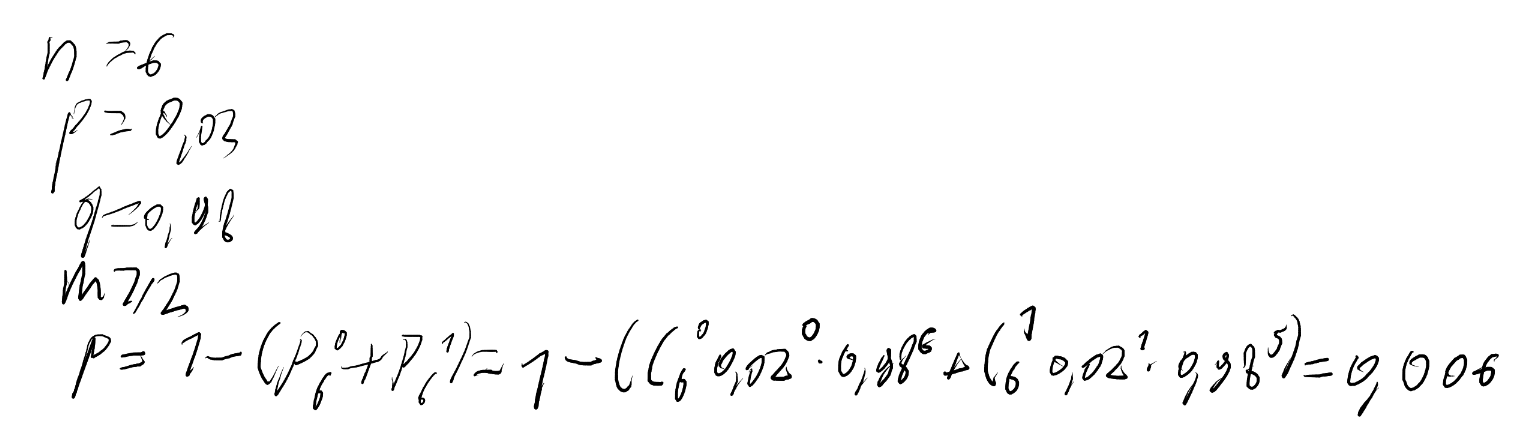 n = 6
p = 0,03
q = 0,98
m ⩾ 2
P = 1 - (P₆⁰ + P₆¹) = 1 - (C₆⁰ 0,02⁰ · 0,98⁶ + C₆¹ 0,02¹ · 0,98⁵) = 0,006